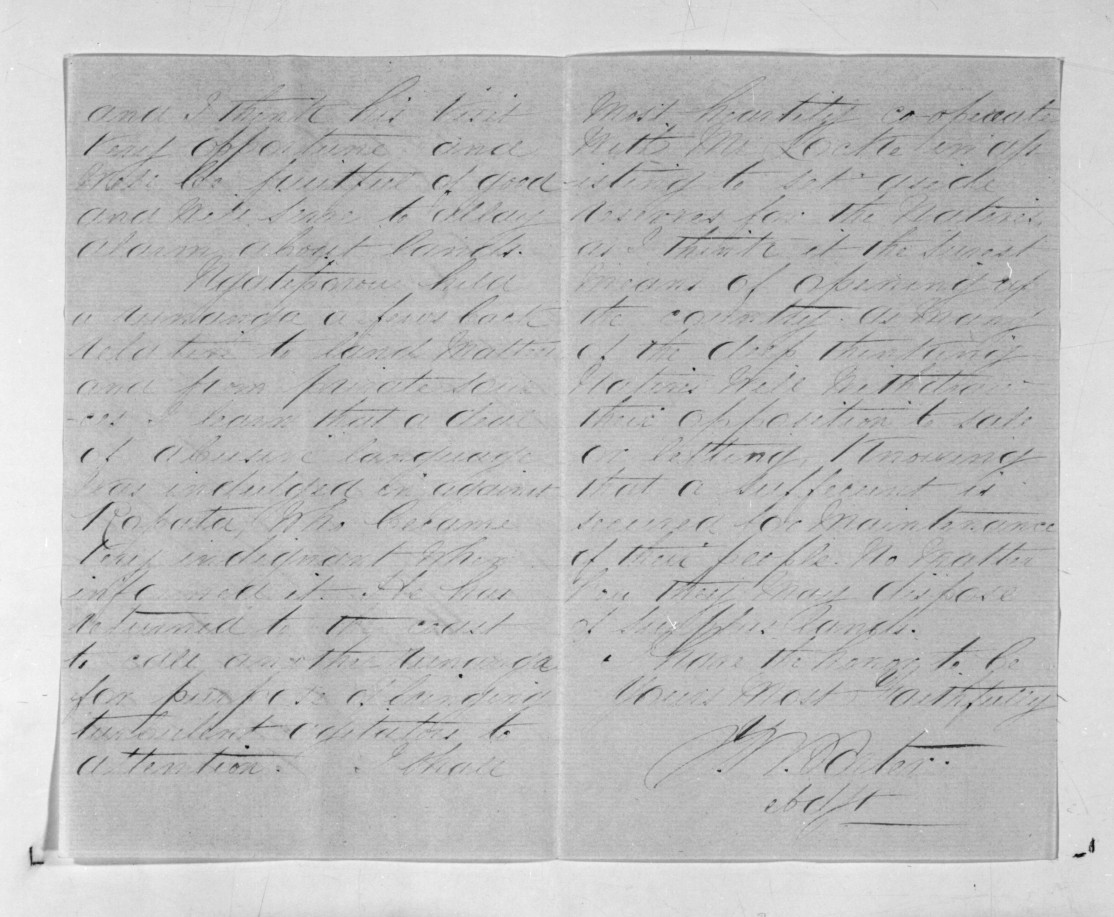 and I think his visit
very opportune and
will be fruitful of good
and will serve to allay
alarm about lands.
Ngatiporou held
a runanga a few back
relative to land matters
and from private sour
-ces I learn that a deal
of abusive language
was indulged in against
Ropata, who became
very indignant when
informed it. He has
returned to the coast
to call another runanga
for purpose of bringing
turbulent agitators to
attention. I shall
most heartily co-operate
with Mr Locke in as
-isting to set aside
reserves for the Natives,
as I think it the surest
means of opening up
the country. as many
of the deep thinking
Natives will withdraw
their opposition to sale
or letting, Knowing
that a sufficient is
secured for maintenance
of their people. No matter
how they may dispose
of surplus lands.
I have the honor to be
Yours most Faithfully
J. W. Porter.
Capt